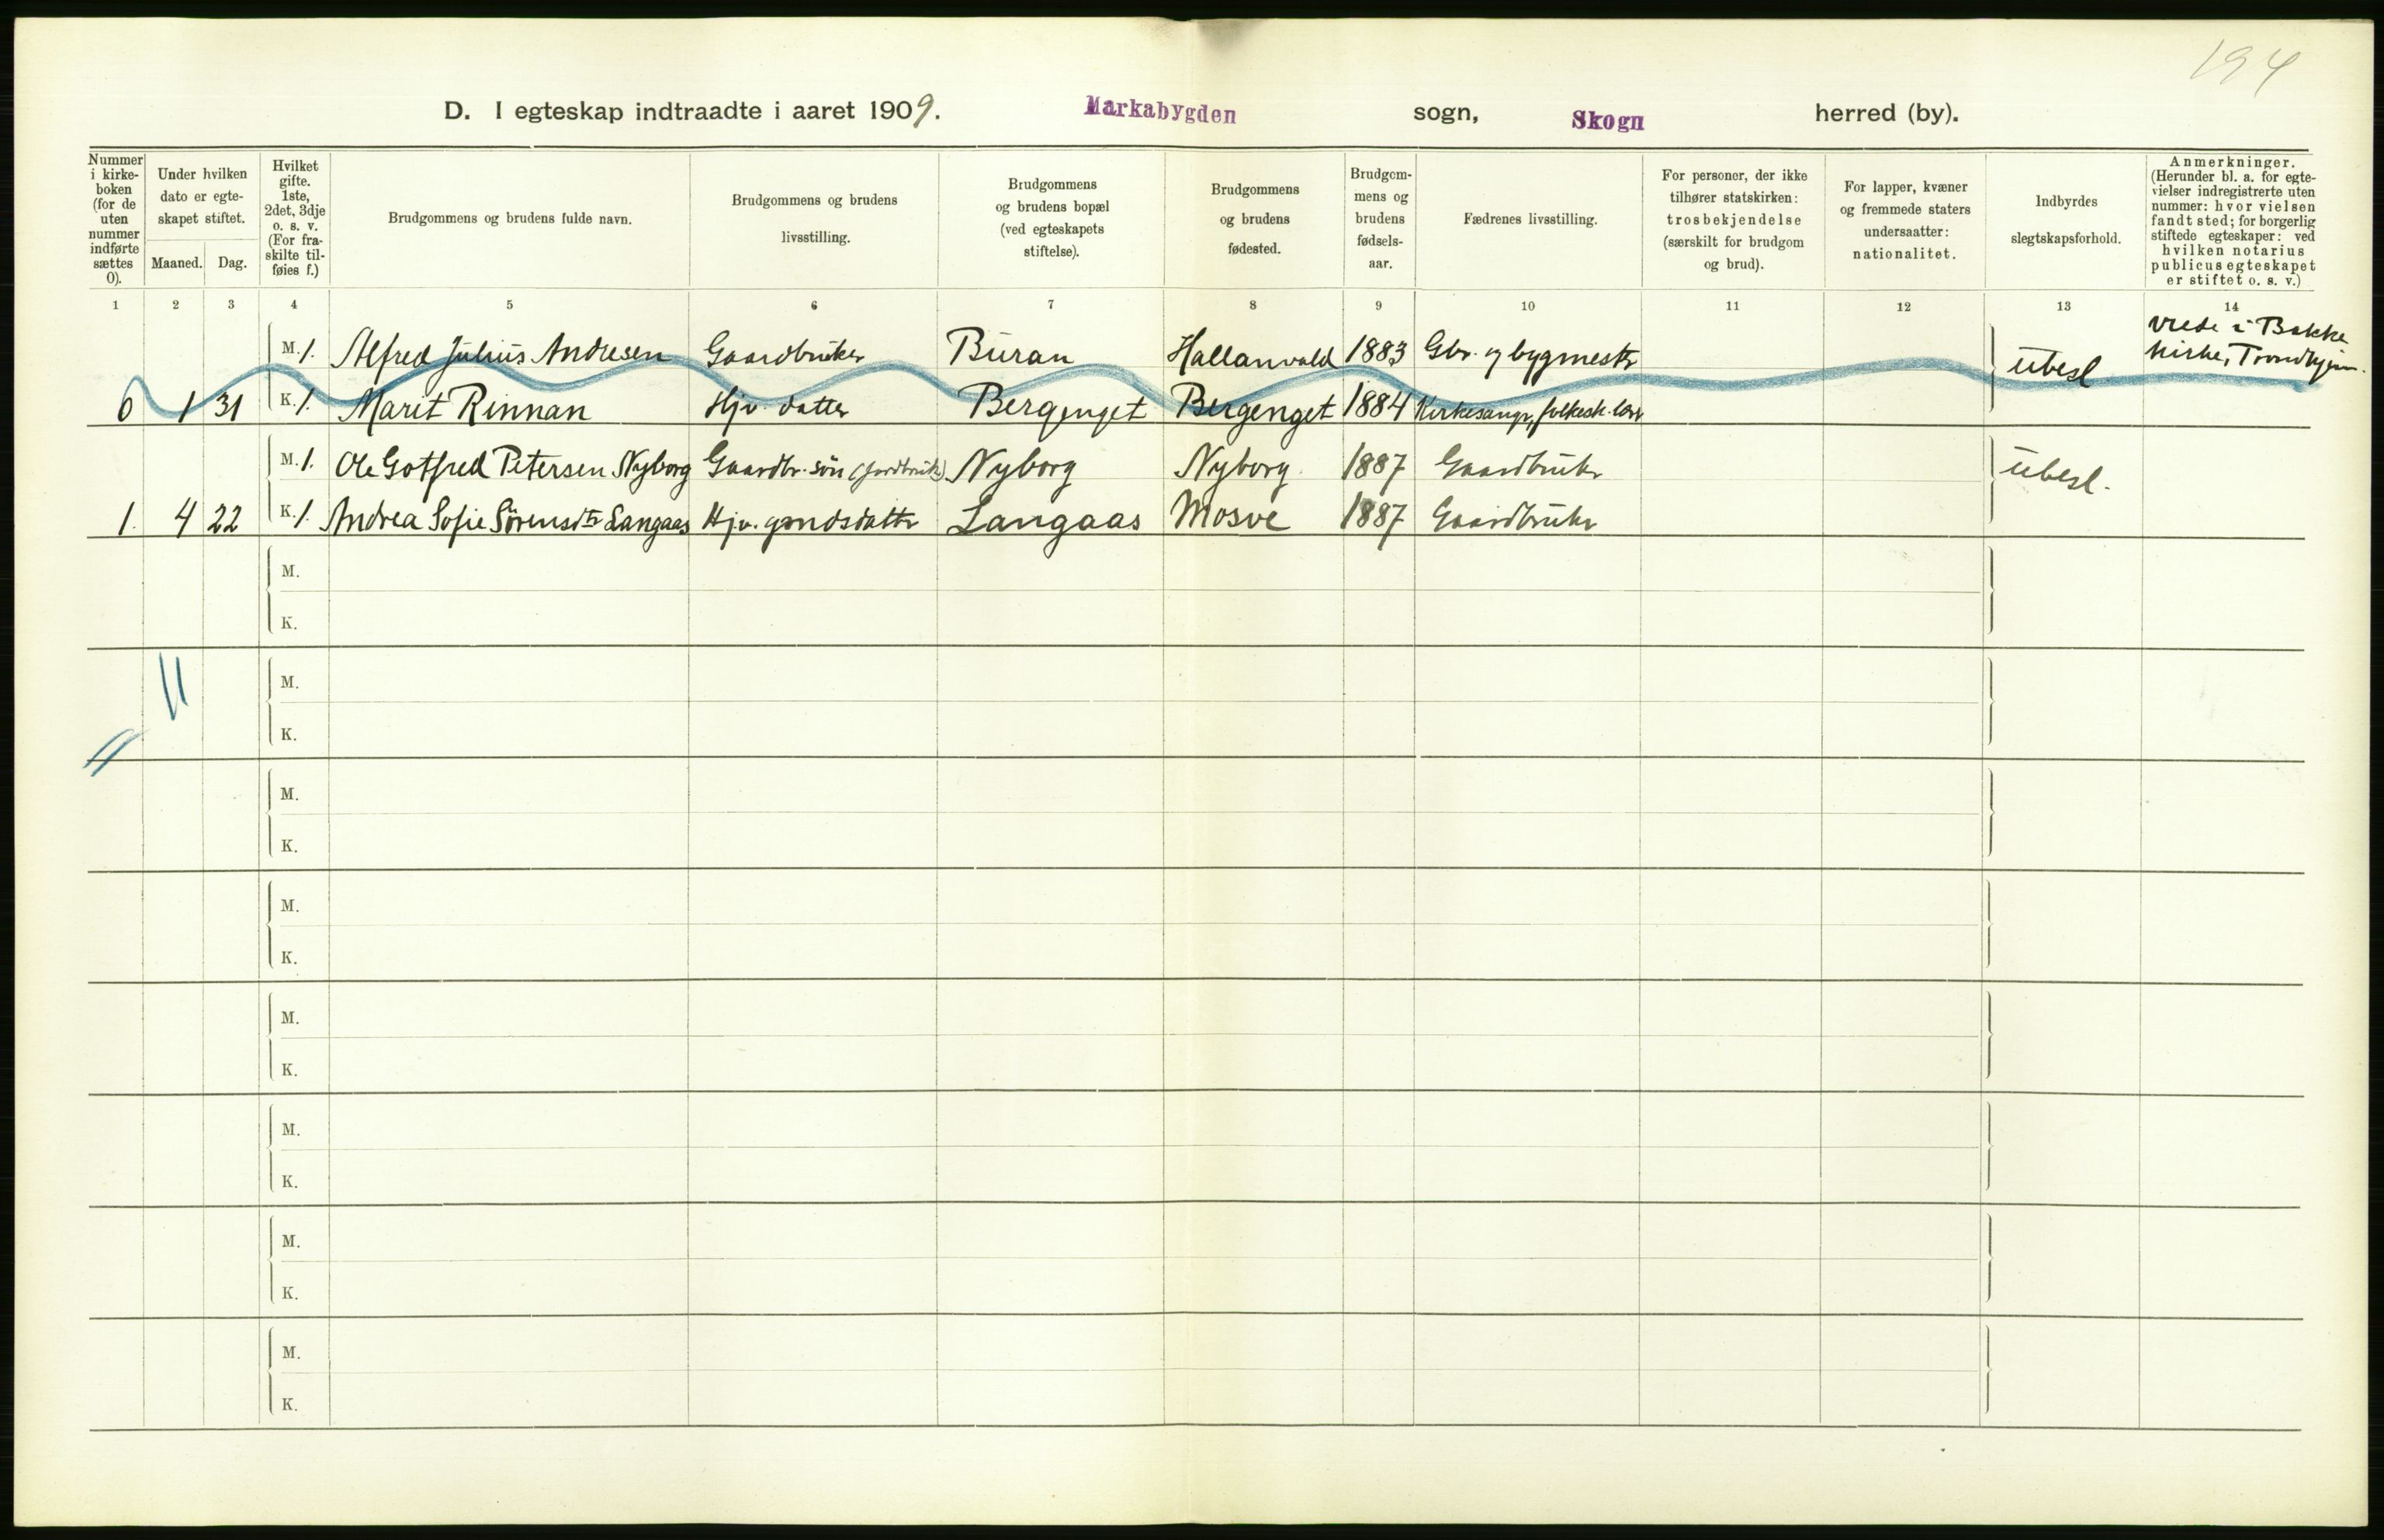 194
D. I egteskap indtraadte i aaret 1909. Markabygden sogn, Skogn herred (by).
Nummer i kirke-boken (for de uten nummer indførte sættes 0).
Under hvilken dato er egte-skapet stiftet.
Maaned. Dag.
Hvilket gifte. 1ste, 2det, 3dje o. s. v. (For fra-skilte til-føies f.)
Brudgommens og brudens fulde navn.
Brudgommens og brudens livsstilling.
Brudgommens og brudens bopæl (ved egteskapets stiftelse).
Brudgommens og brudens fødested.
Brudgom-mens og brudens fødsels-aar.
Fædrenes livsstilling.
For personer, der ikke tilhører statskirken: trosbekjendelse (særskilt for brudgom og brud).
For lapper, kvæner og fremmede staters undersaatter: nationalitet.
Indbyrdes slegtskapsforhold.
Anmerkninger. (Herunder bl. a. for egte-vielser indregistrerte uten nummer: hvor vielsen fandt sted; for borgerlig stiftede egteskaper: ved hvilken notarius publicus egteskapet er stiftet o. s. v.)
1 2 3 4 5 6 7 8 9 10 11 12 13 14
M. 1. Alfred Julius Andresen Gaardbruker Buran Hallanvald 1883 Gbr. og bygmestr ubesl viede i Bakke kirke, Trondhjem.
0 1 31 K. 1. Marit Rinnan Hjv. datter Bergenget Bergenget 1884 Kirkesangr, folkesk. lærr
M. 1. Ole Gotfred Petersen Nyborg Gaardbr. søn (jordbruk) Nyborg Nyborg 1887 Gaardbrukr ubesl.
1. 4 22 K. 1. Andrea Sofie Sørensdtr Langaas Hjv. gmdsdattr Langaas Mosve 1887 Gaardbrukr
M.
K.
M.
K.
M.
K.
M.
K.
M.
K.
M.
K.
M.
K.
M.
K.